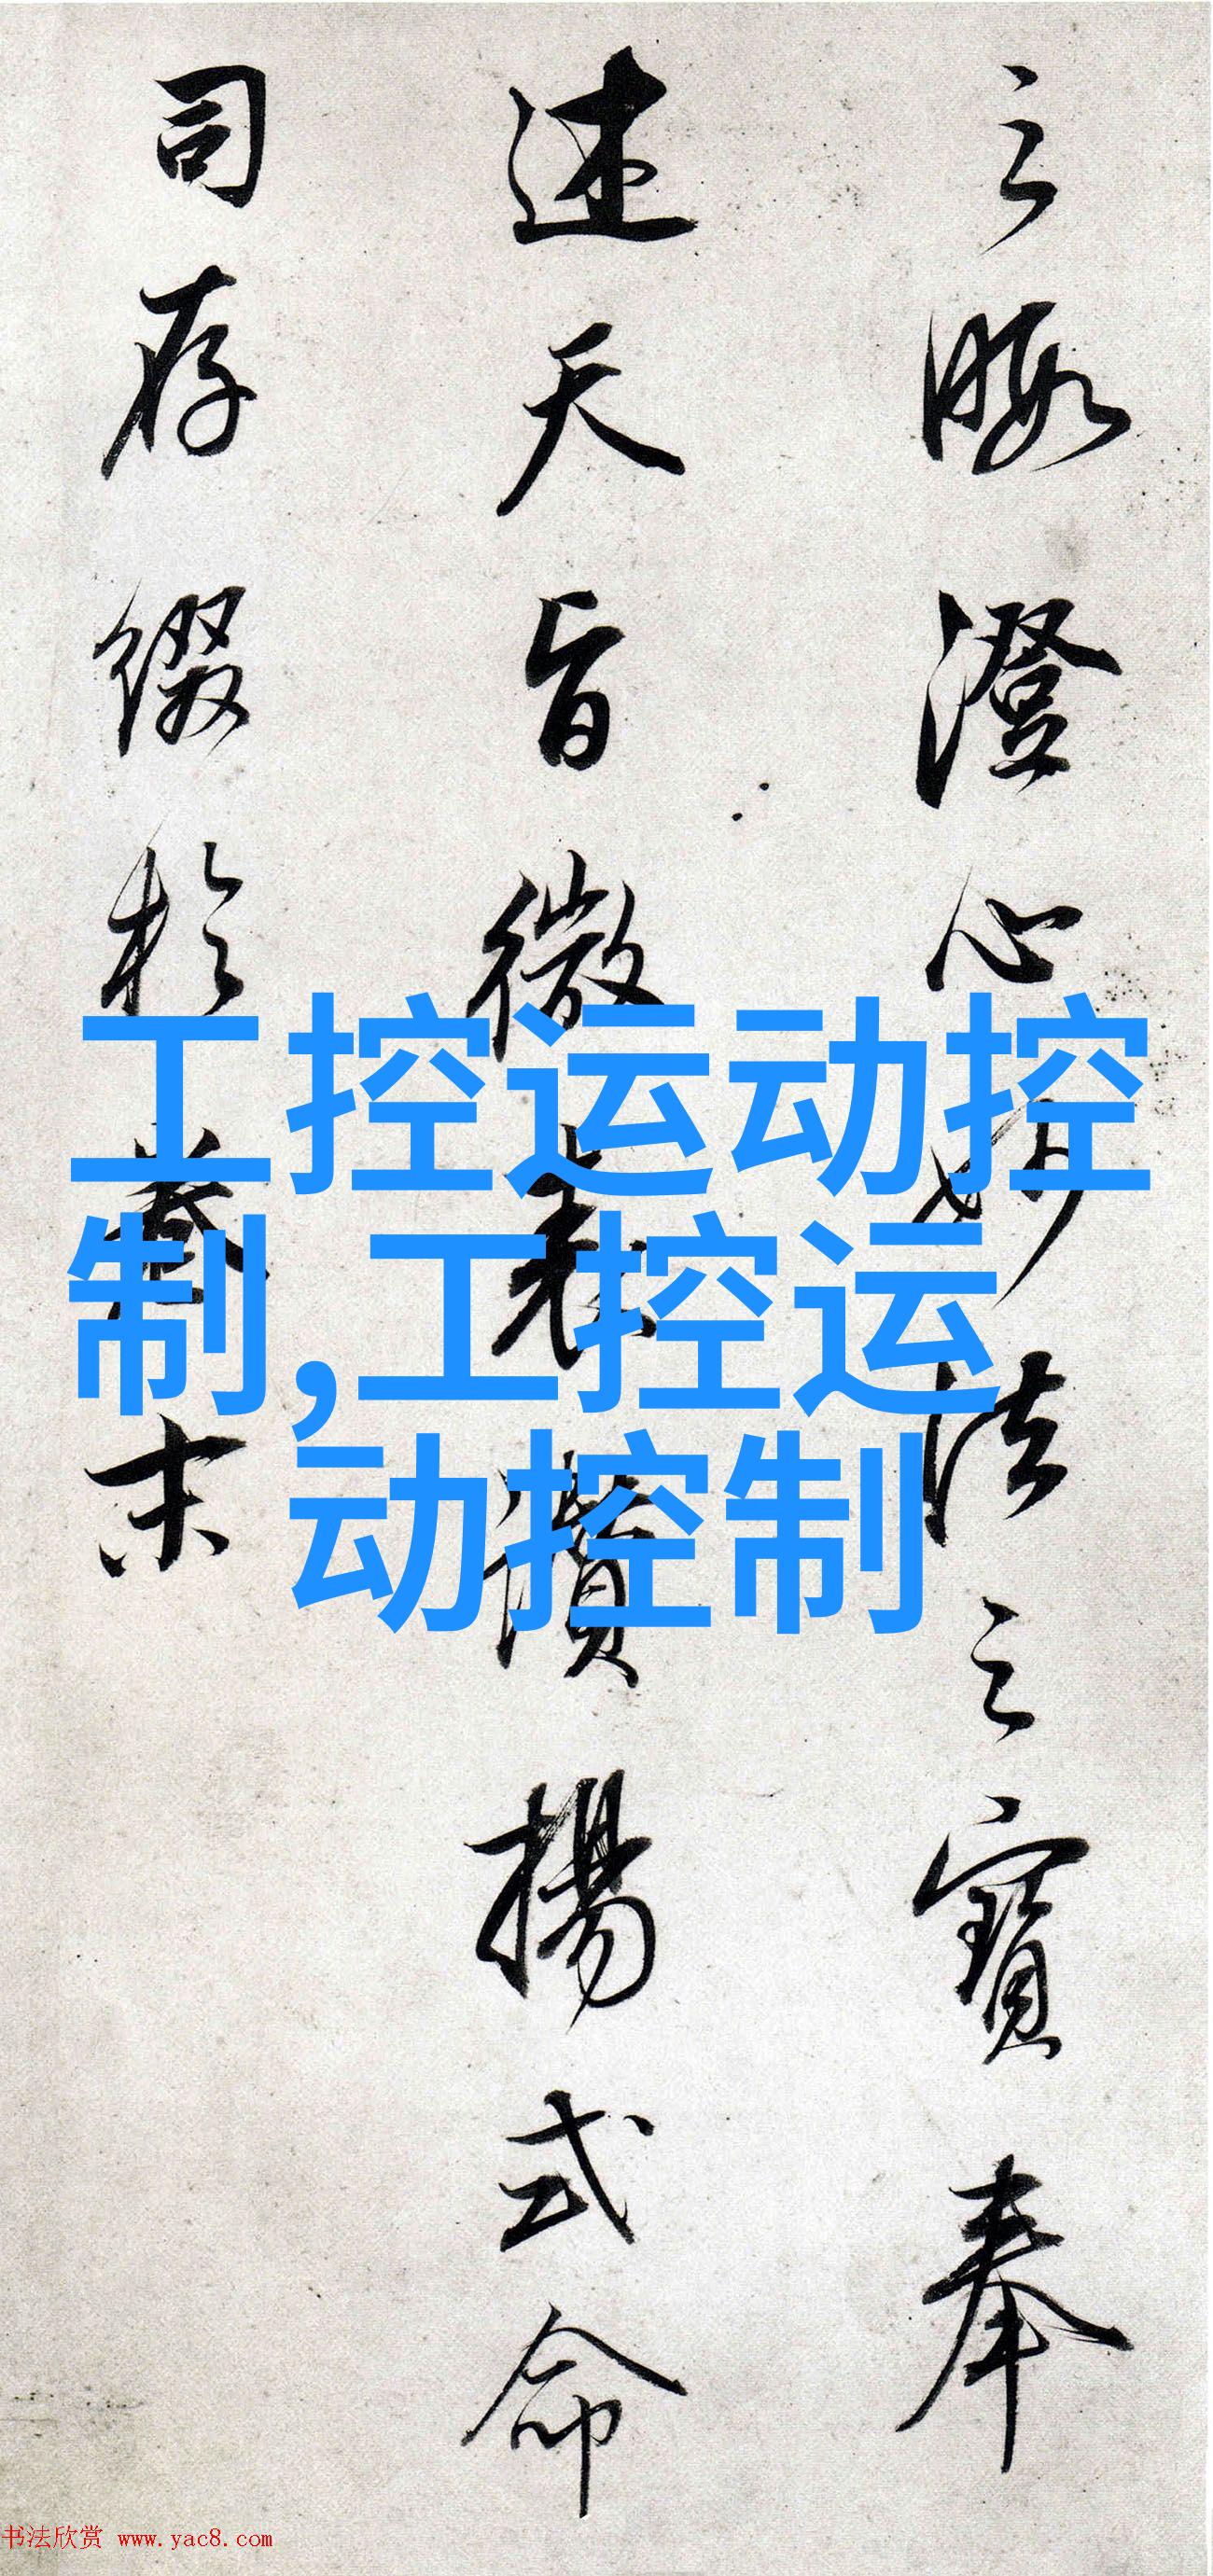 之暇澄心妙法之寶奉
述天旨微表讚揚式命
司存缀於卷末
工控运动控
制,工控运
动控制
书法欣赏 www.yac8.com